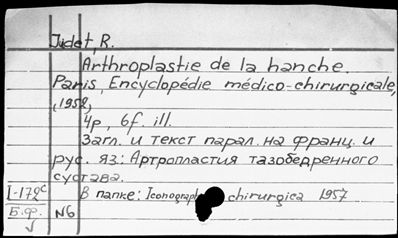 Judet, R.
Arthroplastie de la hanche.
Paris, Encyclopédie médico-chirurgicale,
(1952)
4p, 6f ill.
Загл. и текст парал. на франц. и
рус. яз.: Артропластия тазобедренного
сустава.
I-172c В папке: Iconograph chirurgica 1957
Б.ф. N6